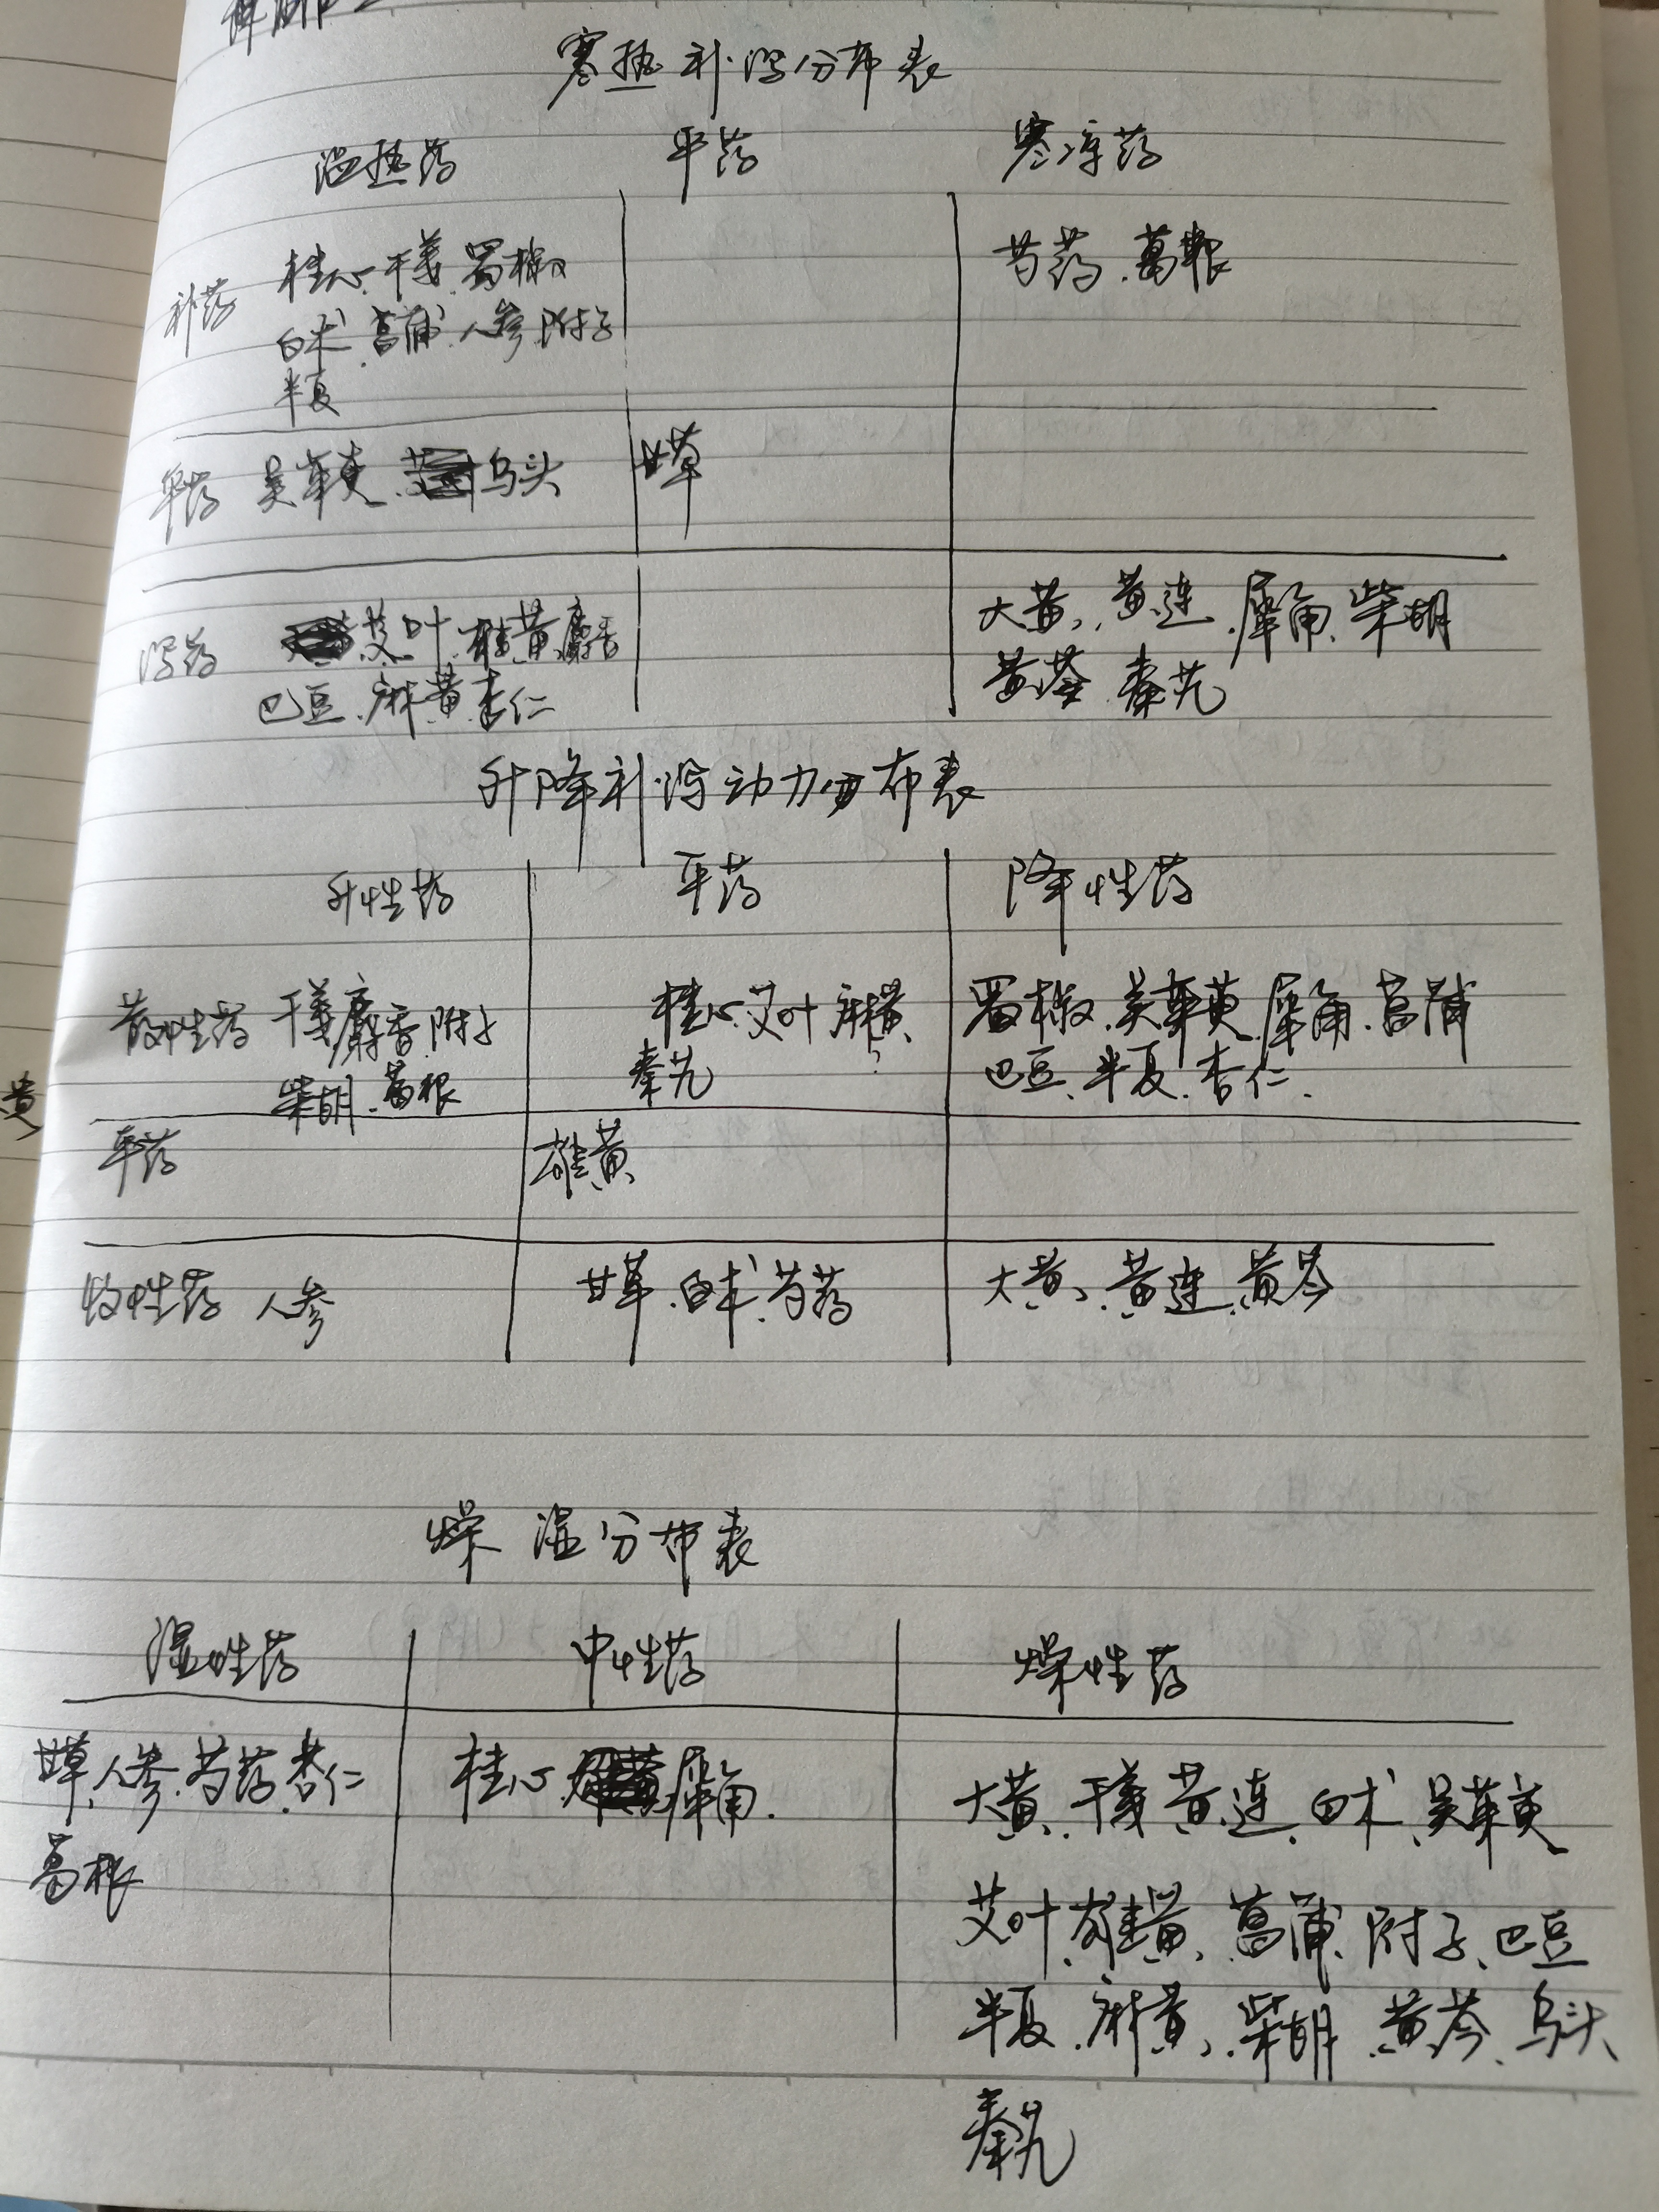 寒热补泻分布表
温热药 平药 寒凉药
补药 桂心.干姜.蜀椒 芍药.葛根
白术.菖蒲.人参.附子
半夏
平药 吴茱萸.乌头 甘草
泻药 艾叶.雄黄.麝香 大黄、黄连.犀角.柴胡
巴豆.麻黄.杏仁 黄芩.秦艽
升降补泻动力分布表
升性药 平药 降性药
散性药 干姜.麝香.附子 桂心.艾叶.麻黄、 蜀椒.吴茱萸.犀角.菖蒲
柴胡.葛根 秦艽 巴豆、半夏.杏仁.
平药 雄黄
收性药 人参 甘草.白术.芍药 大黄、黄连.黄芩
燥湿分布表
湿性药 中性药 燥性药
甘草.人参.芍药.杏仁 桂心.犀角. 大黄、干姜.黄连.白术、吴茱萸
葛根 艾叶.雄黄、菖蒲、附子、巴豆
半夏.麻黄、柴胡.黄芩、乌头
秦艽
黄